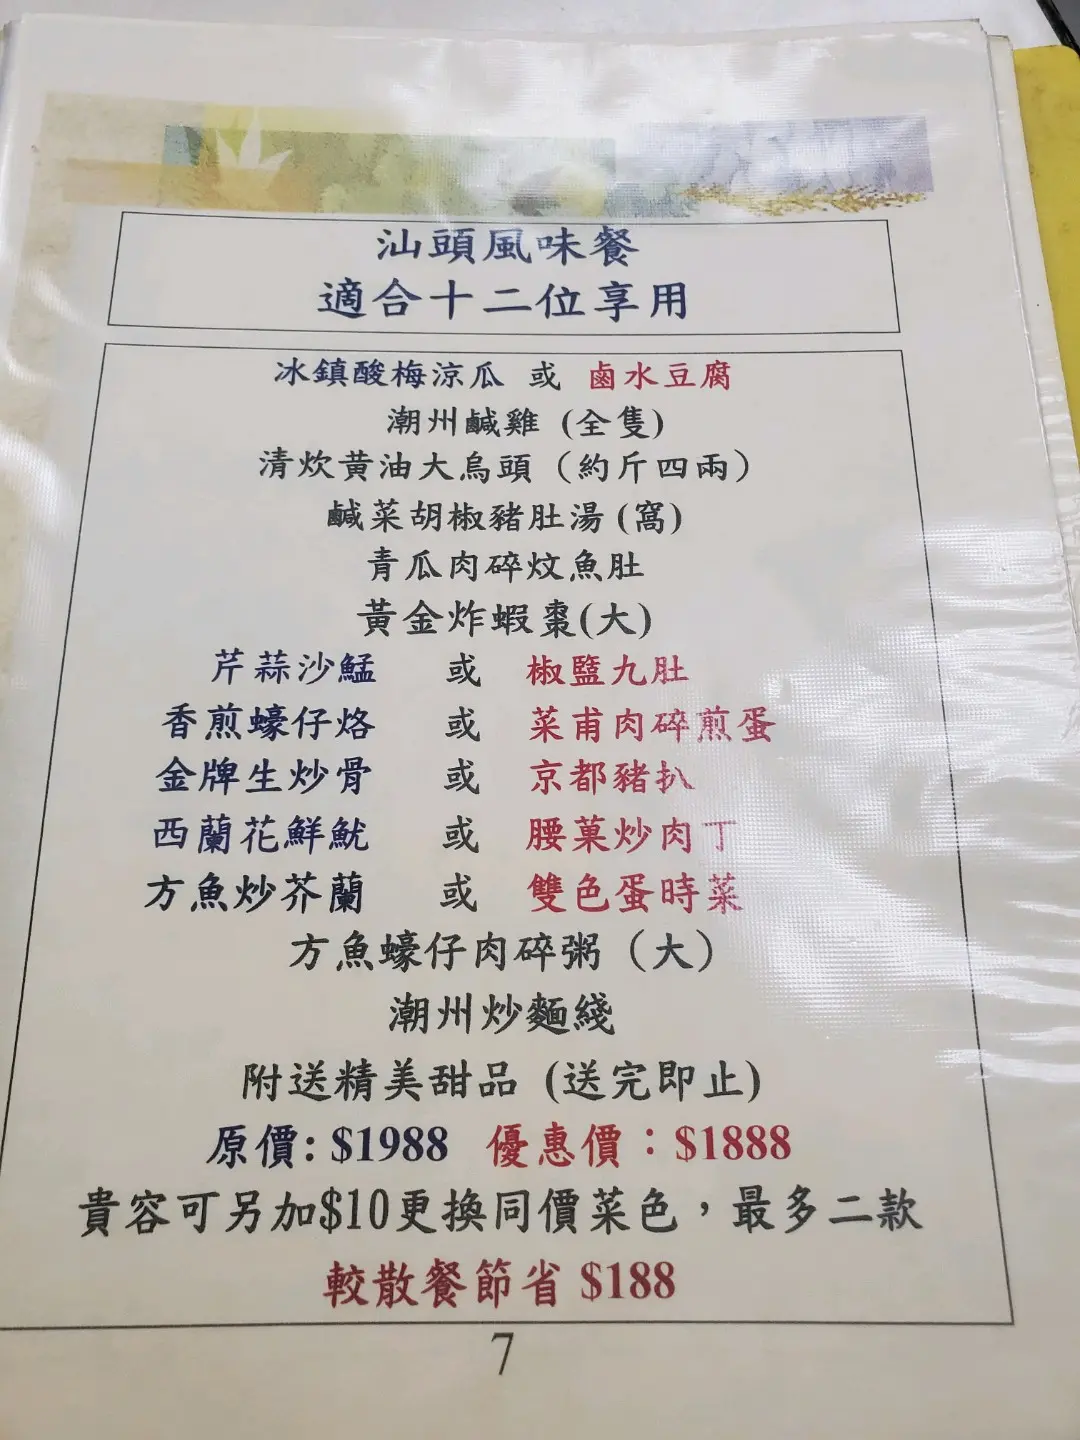 汕頭風味餐
適合十二位享用
冰鎮酸梅涼瓜 或 鹵水豆腐
潮州鹹雞 (全隻)
清炊黃油大烏頭（約斤四兩）
鹹菜胡椒豬肚湯 (窩)
青瓜肉碎炆魚肚
黃金炸蝦棗(大)
芹蒜沙鯭 或 椒鹽九肚
香煎蠔仔烙 或 菜甫肉碎煎蛋
金牌生炒骨 或 京都豬扒
西蘭花鮮魷 或 腰菓炒肉丁
方魚炒芥蘭 或 雙色蛋時菜
方魚蠔仔肉碎粥（大）
潮州炒麵綫
附送精美甜品 (送完即止)
原價: $1988 優惠價：$1888
貴容可另加$10更換同價菜色，最多二款
較散餐節省 $188
7